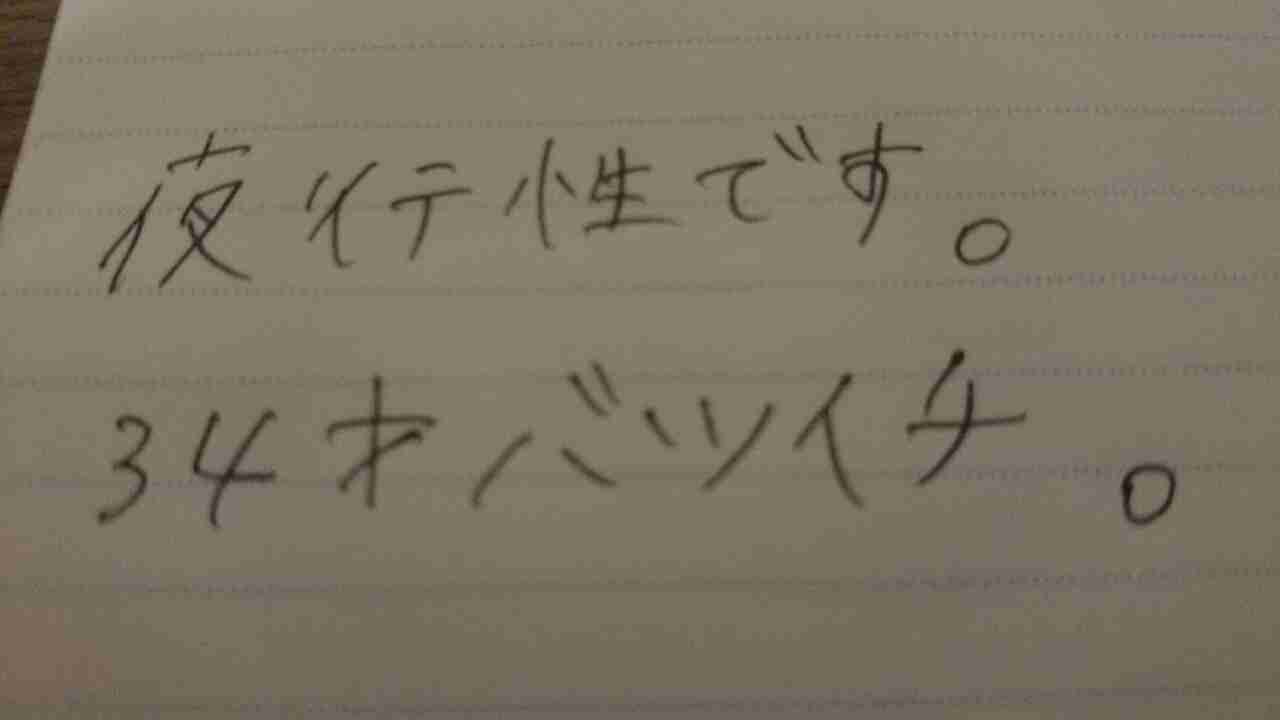 夜行性です。
34才バツイチ。